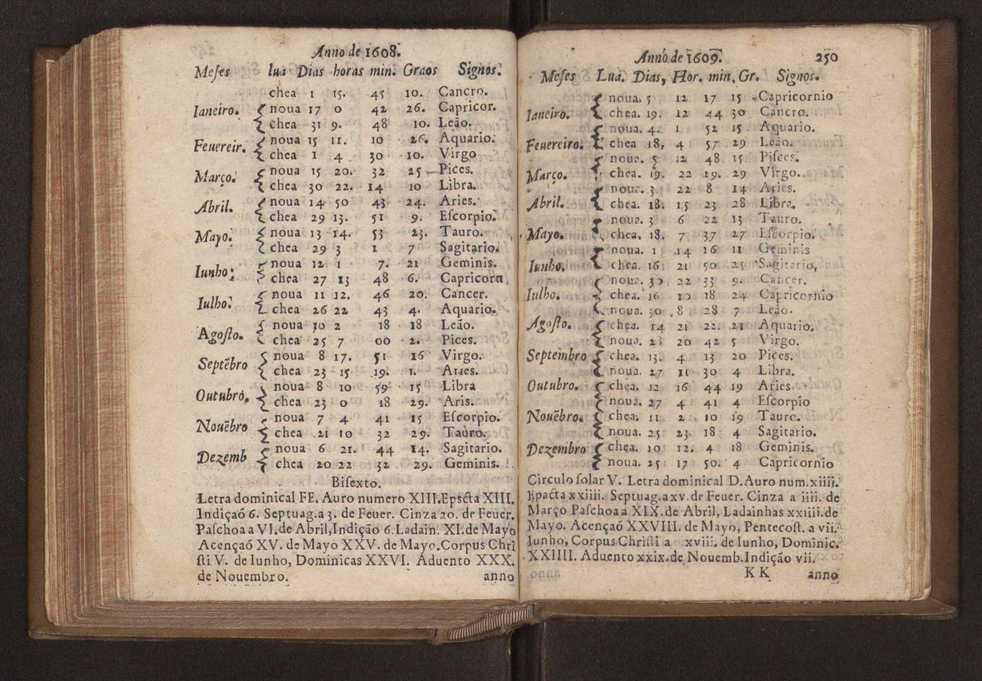 Anno de 1608.
Meſes lua Dias horas min. Graos Signos.
chea 1 15. 45 10. Cancro.
Ianeiro. noua 17 0 42 26. Capricor.
chea 31 9. 48 10. Leão.
Feuereir. noua 15 11. 10 26. Aquario.
chea 1 4 30 10. Virgo
Março. noua 15 20. 32 25 Pices.
chea 30 22. 14 10 Libra.
Abril. noua 14 50 43 24. Aries.
chea 29 13. 51 9. Eſcorpio.
Mayo. noua 13 14. 53 23. Tauro.
chea 29 3 1 7 Sagitario.
Iunho; noua 12 1 7. 21 Geminis.
chea 27 13 48 6. Capricorn
Iulho. noua 11 12. 46 20. Cancer.
chea 26 22 43 4. Aquario.
Agoſto. noua 10 2 18 18 Leão.
chea 25 7 00 2. Pices.
Septẽbro noua 8 17. 51 16 Virgo.
chea 23 15 19. 1. Aries.
Outubro, noua 8 10 59 15 Libra
chea 23 0 18 29. Aris.
Nouẽbro noua 7 4 41 15 Eſcorpio.
chea 21 10 32 29. Tauro.
Dezemb noua 6 21. 44 14. Sagitario.
chea 20 22 32 29. Geminis.
Biſexto.
Letra dominical FE. Auro numero XIII. Epſcta XIII.
Indiçaõ 6. Septuag. a 3. de Feuer. Cinza 20. de Feuer.
Paſchoa a VI. de Abril, Indição 6. Ladain. XI. de Mayo
Acençaõ XV. de Mayo XXV. de Mayo. Corpus Chri
ſti V. de Iunho, Dominicas XXVI. Aduento XXX.
de Nouembro. anno
Anno de 1609. 250
Meſes Lua. Dias, Hor. min, Gr. Signos.
noua. 5 12 17 15 Capricornio
Ianeiro. chea. 19. 12 44 30 Cancro.
noua. 4. 1 52 15 Aquario.
Feuereiro. chea 18, 4 57 29 Leão.
noua. 5 12 48 15 Piſces.
Março. chea. 19. 22 19. 29 Virgo.
noua. 3 22 8 14 Aries.
Abril. chea. 18. 15 23 28 Libra.
noua. 3 6 22 13 Tauro.
Mayo. chea. 18. 7 37 27 Eſcorpio.
noua. 1 14 16 11 Geminis
Iunho. chea. 16 21 50 25 Sagitario,
noua. 30 22 33 9. Cancer.
Iulho. chea. 16 10 18 24 Capricornio
noua. 30 8 28 7 Leão.
Agoſto. chea. 14 21 22. 21 Aquario.
noua. 23 20 42 5 Virgo.
Septembro chea. 13. 4 13 20 Pices.
noua. 27 11 30 4 Libra.
Outubro. chea. 12 16 44 19 Aries
noua. 27 4 41 4 Eſcorpio
Nouẽbro. chea. 11 2 10 19 Tauro.
noua. 25 23. 18 4 Sagitario.
Dezembro chea. 10 12. 4 18 Geminis.
noua. 25 17 50. 4 Capricornio
Circulo ſolar V. Letra dominical D. Auro num. xiiii.
Epacta xxiiii. Septuag. a xv. de Feuer. Cinza a iiii. de
Março Paſchoa a XIX. de Abril, Ladainhas xxiiii. de
Mayo. Acençaõ XXVIII. de Mayo, Pentecoſt. a vii.
Iunho, Corpus Chriſti a xviii. de Iunho, Dominic.
XXIIII. Aduento xxix. de Nouemb. Indição vii.
KK anno